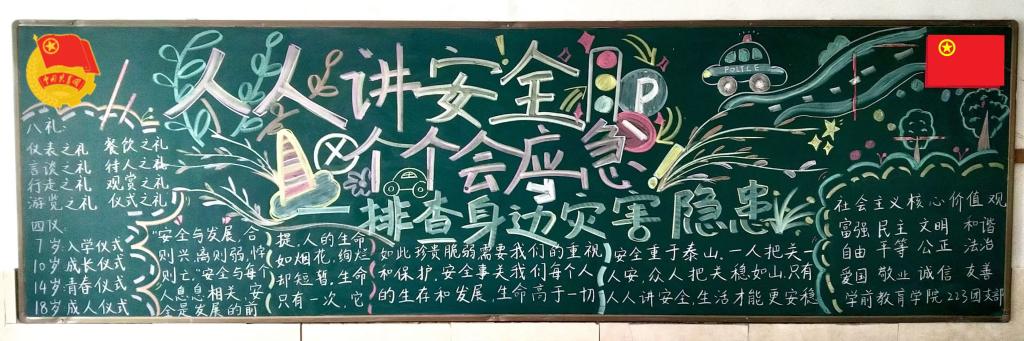 人人讲安全
个个会应急
排查身边灾害隐患
POLICE
P
中国共青团
八礼:
仪表之礼 餐饮之礼
言谈之礼 待人之礼
行走之礼 观赏之礼
游览之礼 仪式之礼
四仪:
7岁:入学仪式
10岁:成长仪式
14岁:青春仪式
18岁:成人仪式
"安全与发展,合
则兴,离则弱,悖
则亡."安全与每个
人息息相关,安
全是发展的前
提,人的生命
如烟花,绚烂
却短暂,生命
只有一次,它
如此珍贵脆弱需要我们的重视
和保护,安全事关我们每个人
的生存和发展,生命高于一切
安全重于泰山.一人把关一
人安,众人把关稳如山,只有
人人讲安全,生活才能更安稳
社会主义核心价值观
富强 民主 文明 和谐
自由 平等 公正 法治
爱国 敬业 诚信 友善
学前教育学院 223团支部